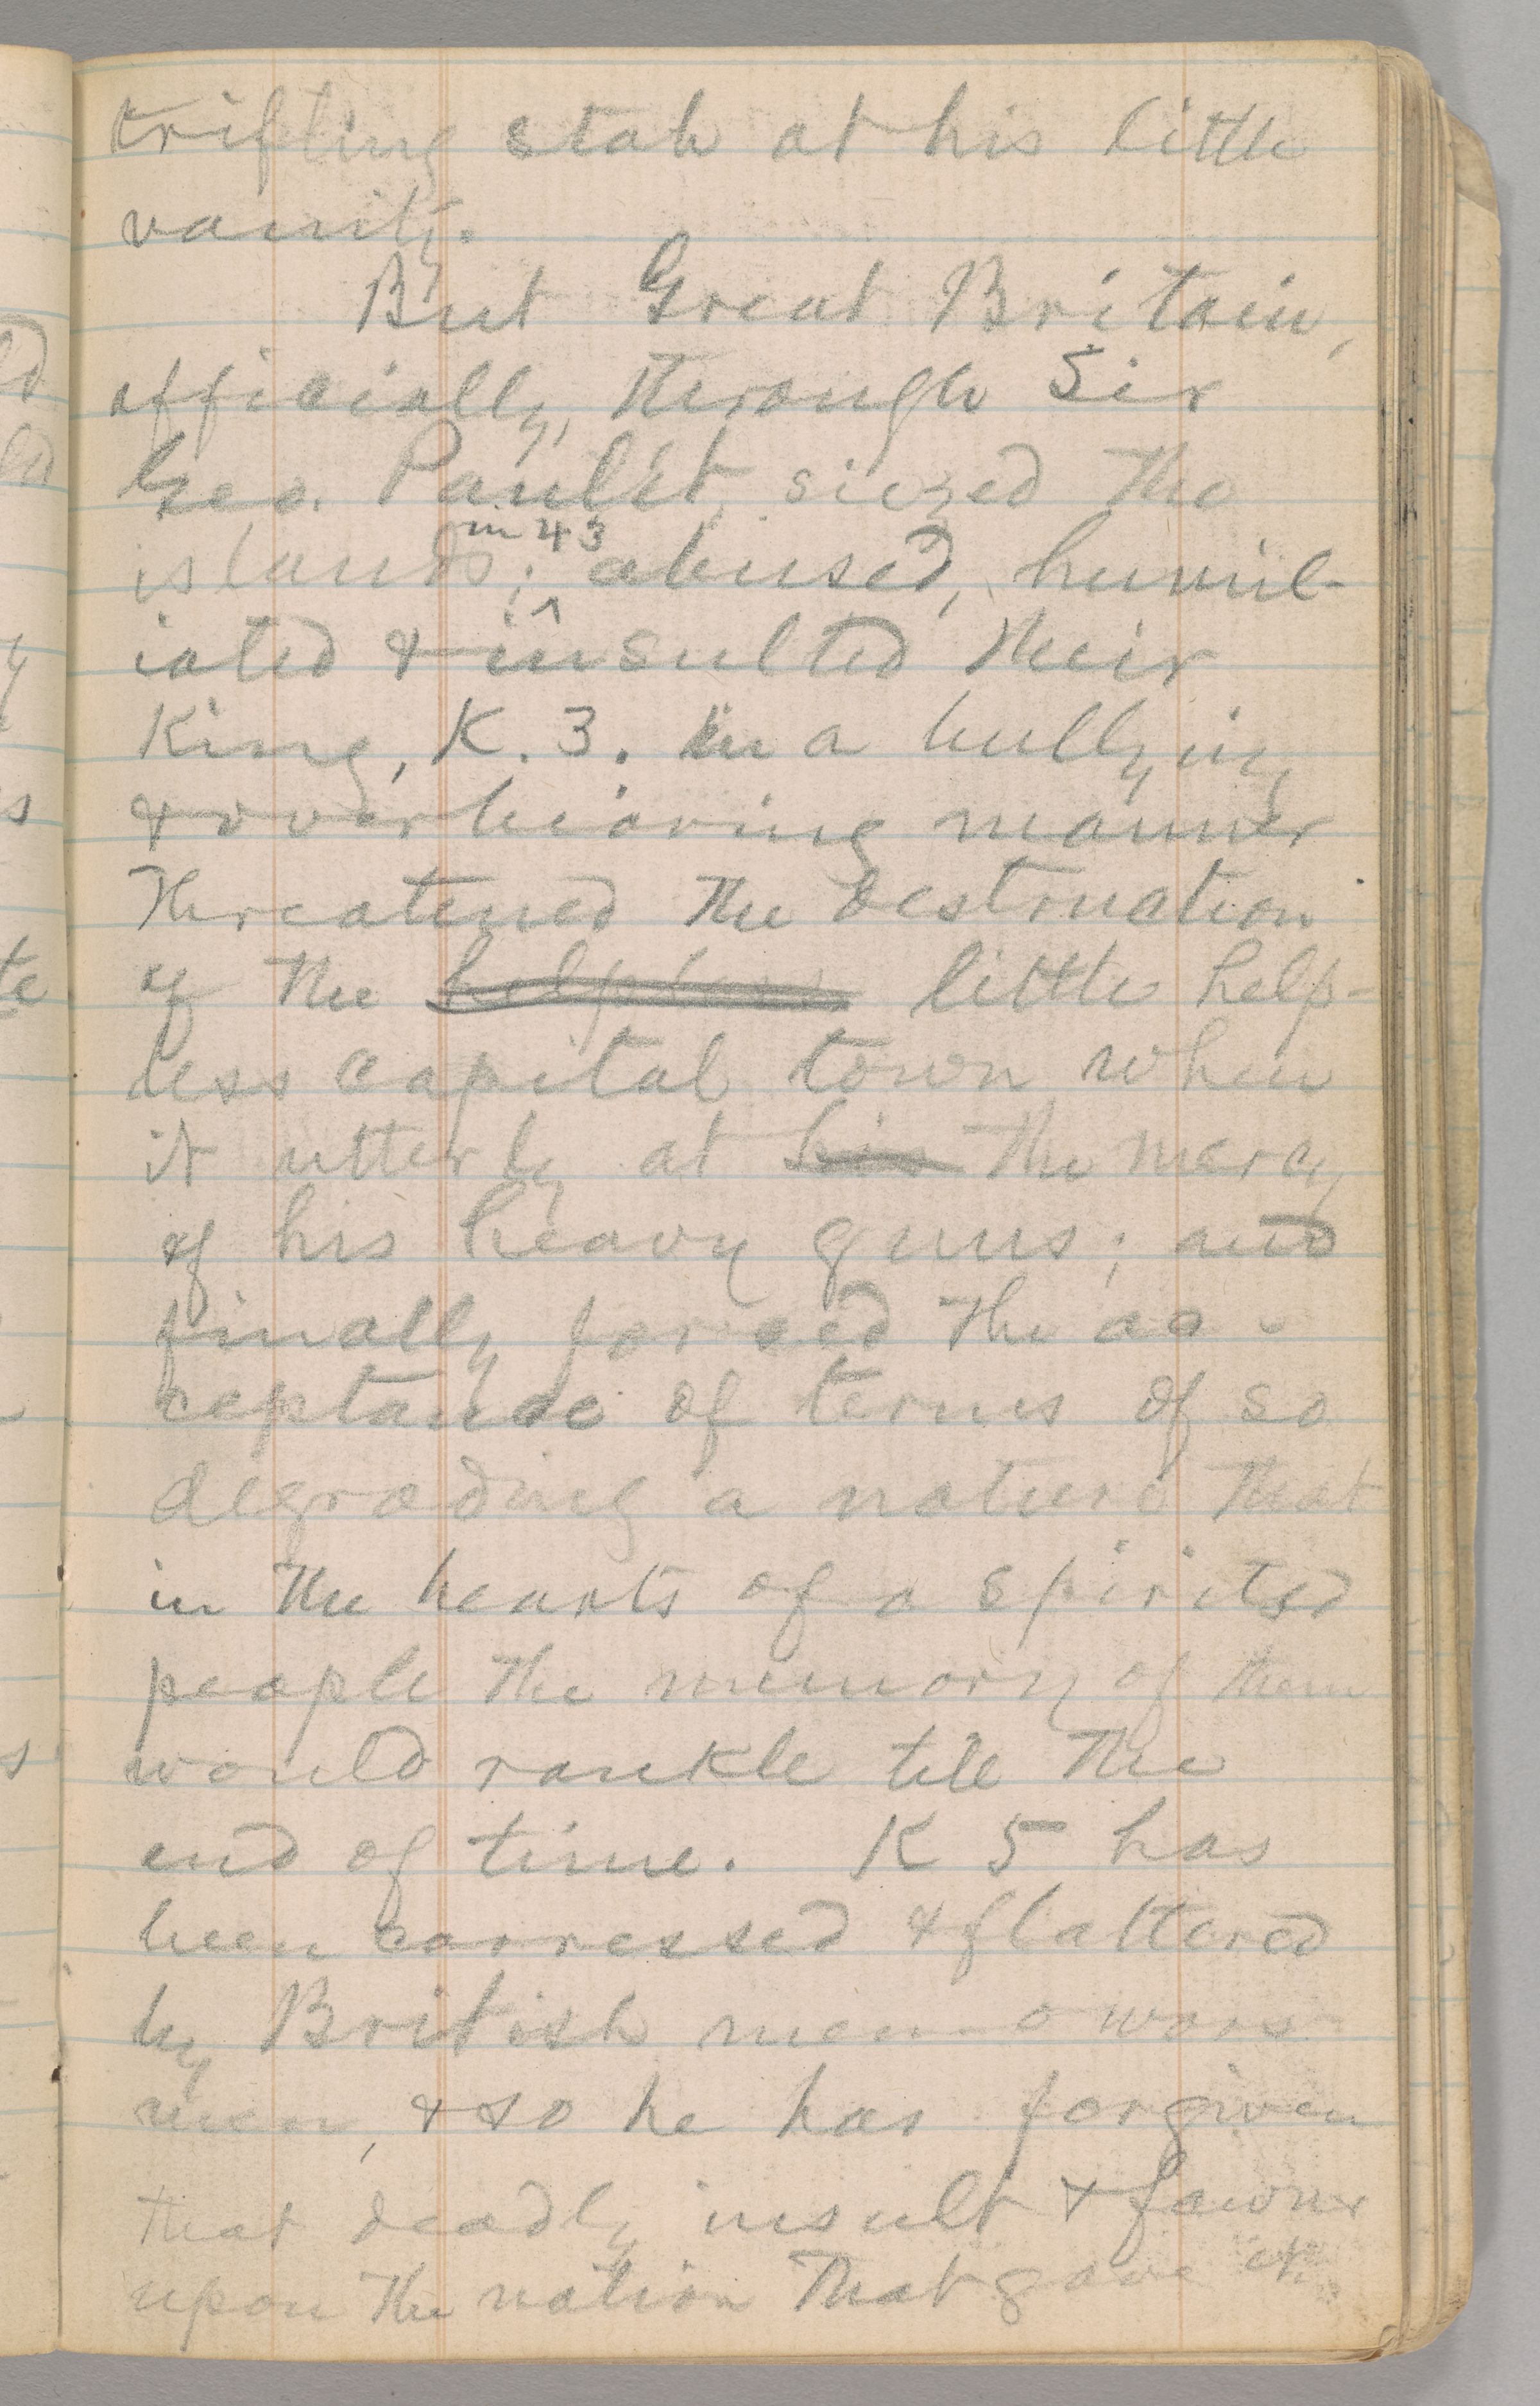 trifling stab at his little
vanity.
But Great Britain,
officially, through Sir
Geo. Paulet, siezed the
islands; in 43 abused, humil-
iated & insulted their
King, K. 3. in a bullying
& overbearing manner
threatened the destruction
of the helpless little help-
less capital town when
it utterly at his the mercy
of his heavy guns; and
finally forced the ac-
ceptance of terms of so
degrading a nature that
in the hearts of a spirited
people the memory of them
would rankle till the
end of time. K 5 has
been carressed & flattered
by British men-o wars
men, & so he has forgiven
that deadly insult & fawns
upon the nation that gave it.